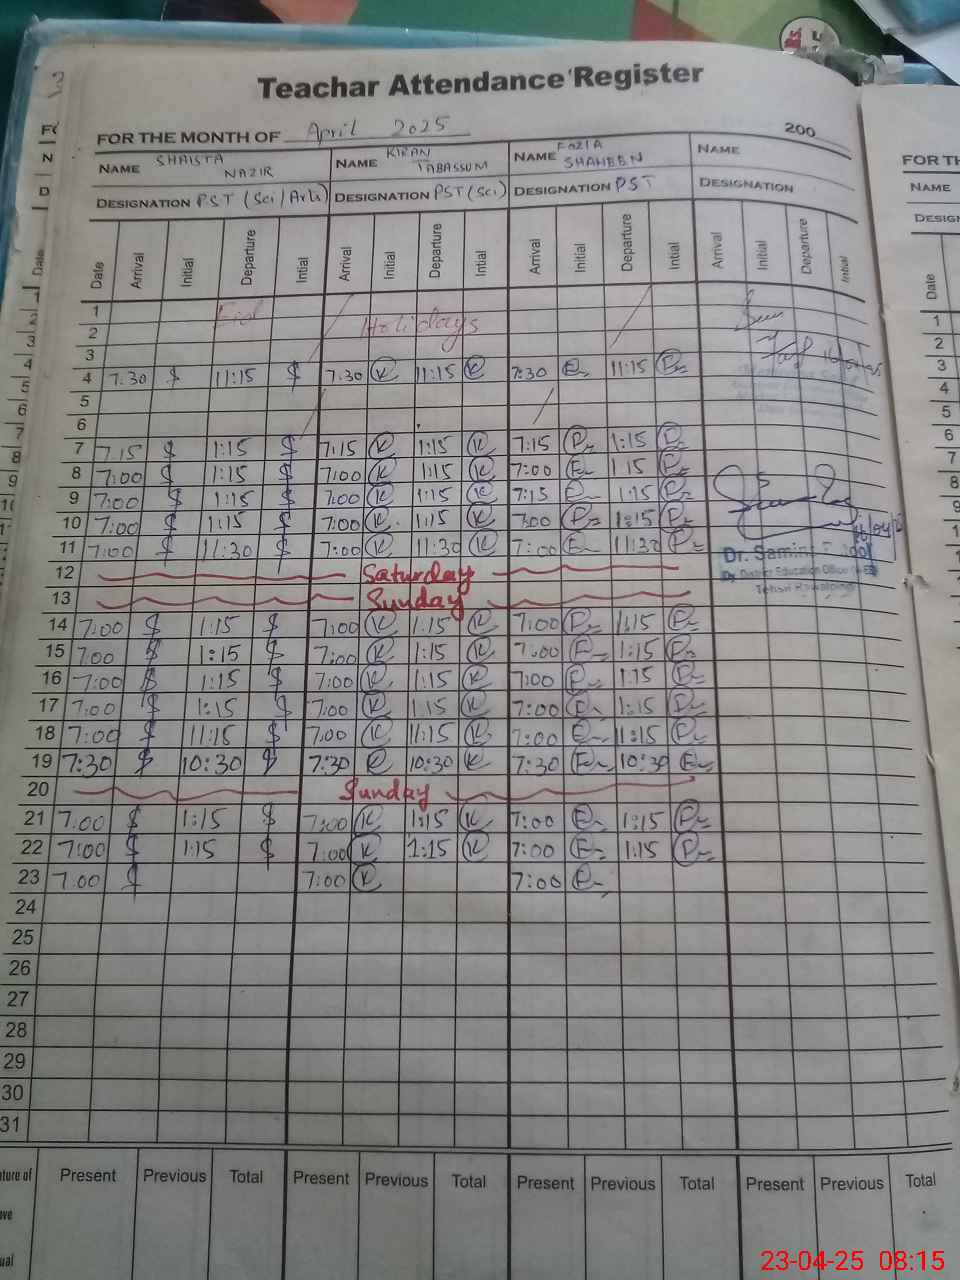 Teachar Attendance Register
FOR THE MONTH OF April 2025 200
NAME SHAISTA NAZIR NAME KIRAN TABASSUM NAME FOZIA SHAHEEN NAME
DESIGNATION PST (Sci/Arts) DESIGNATION PST (Sci) DESIGNATION PST DESIGNATION
Date Arrival Initial Departure Intial Arrival Initial Departure Intial Arrival Initial Departure Intial Arrival Initial Departure Intial
1 Eid Holidays
2
3
4 7:30 $ 11:15 $ 7:30 K 11:15 K 7:30 11:15
5
6
7 7:15 $ 1:15 $ 7:15 K 1:15 K 7:15 1:15
8 7:00 $ 1:15 $ 7:00 K 1:15 K 7:00 1:15
9 7:00 $ 1:15 $ 7:00 K 1:15 K 7:15 1:15
10 7:00 $ 1:15 $ 7:00 K 1:15 K 7:00 1:15
11 7:00 $ 11:30 $ 7:00 K 11:30 K 7:00 11:30
Dr. Samina
District Education Officer
12 Saturday
13 Sunday
14 7:00 $ 1:15 $ 7:00 K 1:15 K 7:00 1:15
15 7:00 $ 1:15 $ 7:00 K 1:15 K 7:00 1:15
16 7:00 $ 1:15 $ 7:00 K 1:15 K 7:00 1:15
17 7:00 $ 1:15 $ 7:00 K 1:15 K 7:00 1:15
18 7:00 $ 11:15 $ 7:00 K 11:15 K 7:00 11:15
19 7:30 $ 10:30 $ 7:30 K 10:30 K 7:30 10:30
20 Sunday
21 7:00 $ 1:15 $ 7:00 K 1:15 K 7:00 1:15
22 7:00 $ 1:15 $ 7:00 K 1:15 K 7:00 1:15
23 7:00 $ 7:00 K 7:00
24
25
26
27
28
29
30
31
Present Previous Total Present Previous Total Present Previous Total Present Previous Total
FOR TH
NAME
DESIGN
Date
1
2
3
4
5
6
7
8
23-04-25 08:15